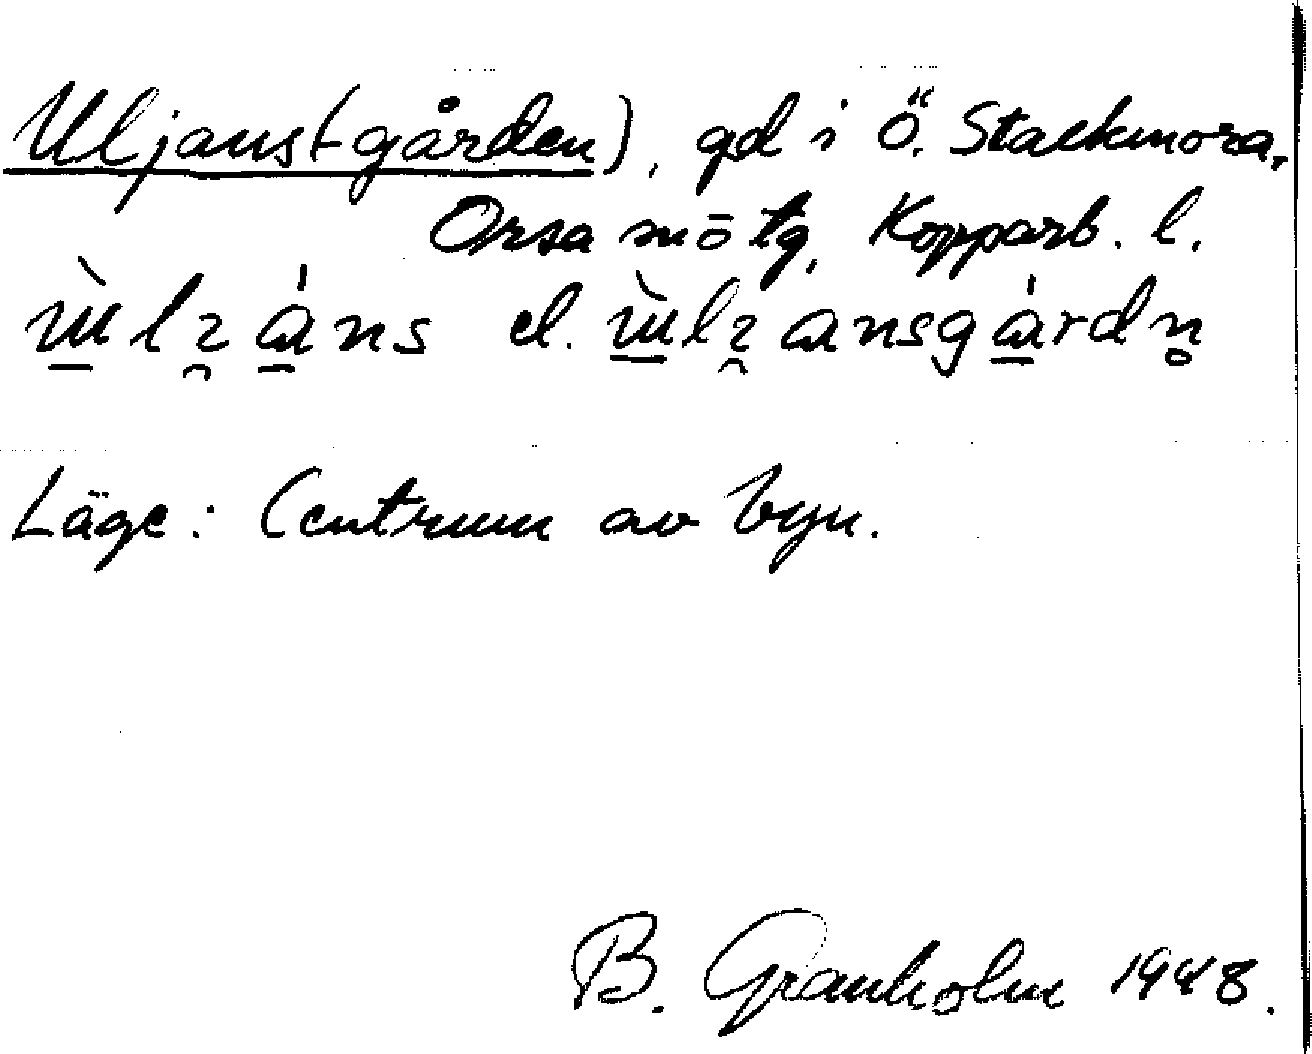 Uljans(-gården), gd i Ö. Stackmora,
Orsa sn o tg, Kopparb. l.
el.
Läge: Centrum av byn.
B. Granholm 1948.